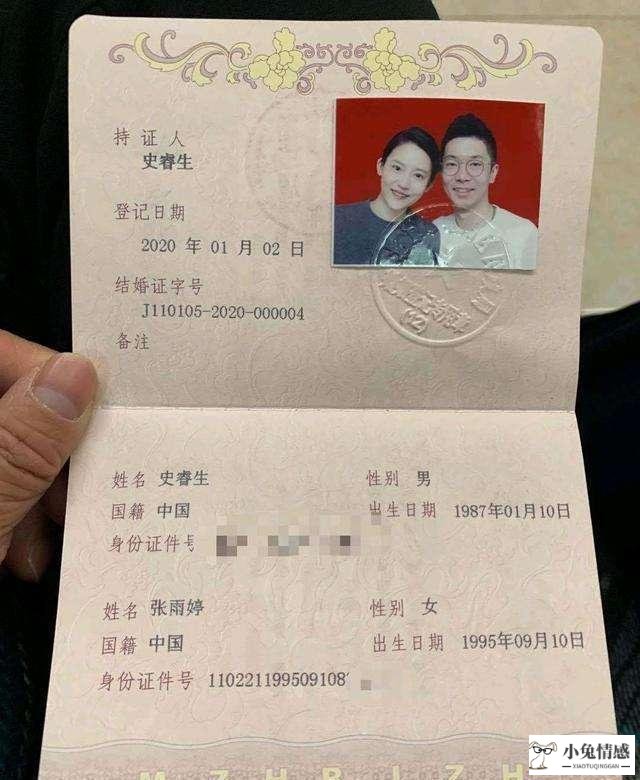 持证人
史睿生
登记日期
2020 年 01 月 02 日
结婚证字号
J110105-2020-000004
备注
姓名 史睿生 性别 男
国籍 中国 出生日期 1987年01月10日
身份证件号
姓名 张雨婷 性别 女
国籍 中国 出生日期 1995年09月10日
身份证件号 110221199509108
小兔情感
XIAOTUQINGGAN